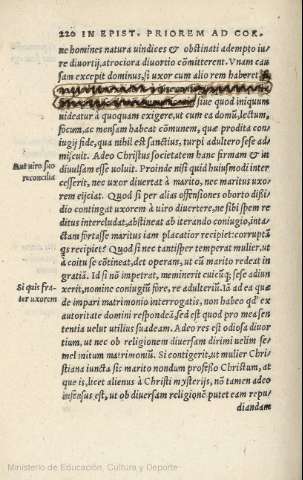 220 IN EPIST. PRIOREM AD COR.
ne homines natura uindices & obstinati adempto iu-
re diuortij, atrociora diuortio cõmitterent. Vnam cau
sam excepit dominus, si uxor cum alio rem haberet
siue quod iniquum
uideatur à quoquam exigere, ut cum ea domũ, lectum,
focum, ac mensam habeat cõmunem, quæ prodita con-
iugij fide, qua nihil est sanctius, turpi adultero sese ad-
miscuit. Adeo Christus societatem hanc firmam & in
Aut uiro suo
reconcilia
diuulsam esse uoluit. Proinde nisi quid huiusmodi inter
cesserit, nec uxor diuertat à marito, nec maritus uxo-
rem eijciat. Quod si per alias offensiones oborto dissi-
dio contingat uxorem à uiro diuertere, ne sibi spem re
ditus intercludat, abstineat ab iterando coniugio, inta-
ctam fortasse maritus iam placatior recipiet: corruptã
qs recipiet? Quod si nec tantisper temperat mulier, ut
à coitu se cõtineat, det operam, ut cũ marito redeat in
gratiã. Id si nõ impetrat, meminerit cuicũq; sese adiun
Si quis fra-
ter uxorem
xerit, nomine coniugiũ fore, re adulteriũ. Iã ad ea quæ
de impari matrimonio interrogatis, non habeo qd' ex
autoritate domini respondeã, sed est quod pro mea sen
tentia uelut utilius suadeam. Adeo res est odiosa diuor
tium, ut nec ob religionem diuersam dirimi uelim se-
mel initum matrimoniũ. Si contigerit, ut mulier Chri-
stiana iuncta sic marito nondum professo Christum, at
que is, licet alienus à Christi mysterijs, nõ tamen adeo
infensus est, ut ob diuersam religionẽ putet eam repu/
diandam
Ministerio de Educación, Cultura y Deporte